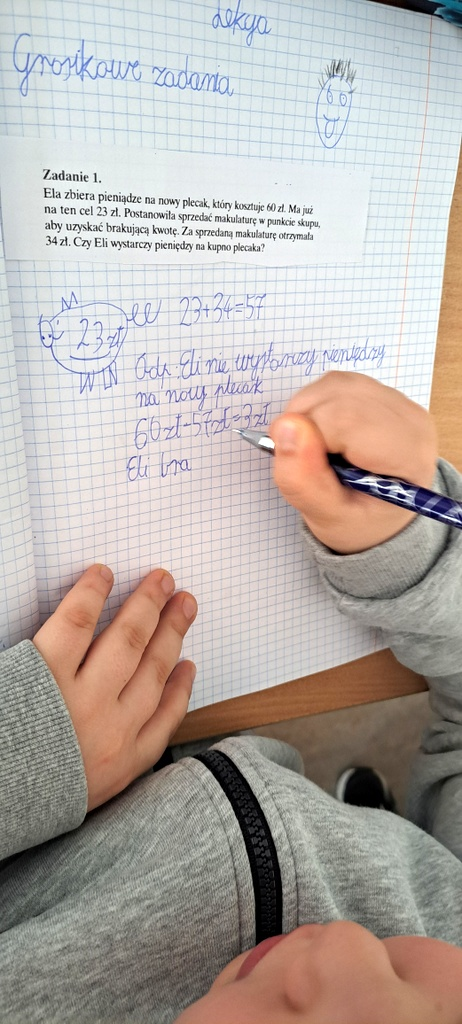 Lekcja
Grosikowe zadania
Zadanie 1.
Ela zbiera pieniądze na nowy plecak, który kosztuje 60 zł. Ma już
na ten cel 23 zł. Postanowiła sprzedać makulaturę w punkcie skupu,
aby uzyskać brakującą kwotę. Za sprzedaną makulaturę otrzymała
34 zł. Czy Eli wystarczy pieniędzy na kupno plecaka?
23 zł
23+34=57
Odp. Eli nie wystarczy pieniędzy
na nowy plecak
60 zł-57 zł=3 zł
Eli bra